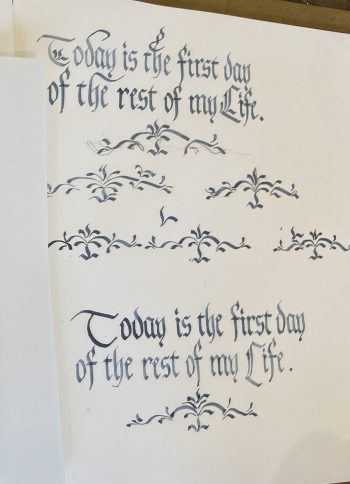 Today is the first day
of the rest of my Life.
Today is the first day
of the rest of my Life.